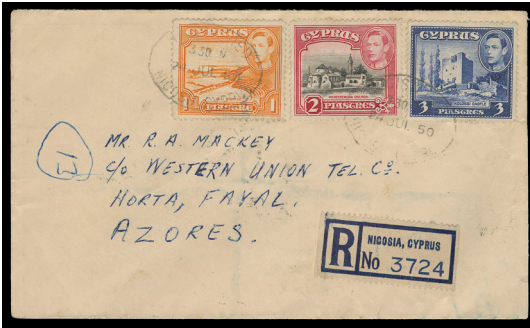 CYPRUS
1 PIASTRE 1
CYPRUS
2 PIASTRES
CYPRUS
KOLOSSI CASTLE
3 PIASTRES 3
JUL 50
13
MR. R.A. MACKEY
C/O WESTERN UNION TEL. Co.
HORTA, FAYAL.
AZORES.
R
NICOSIA, CYPRUS
No 3724